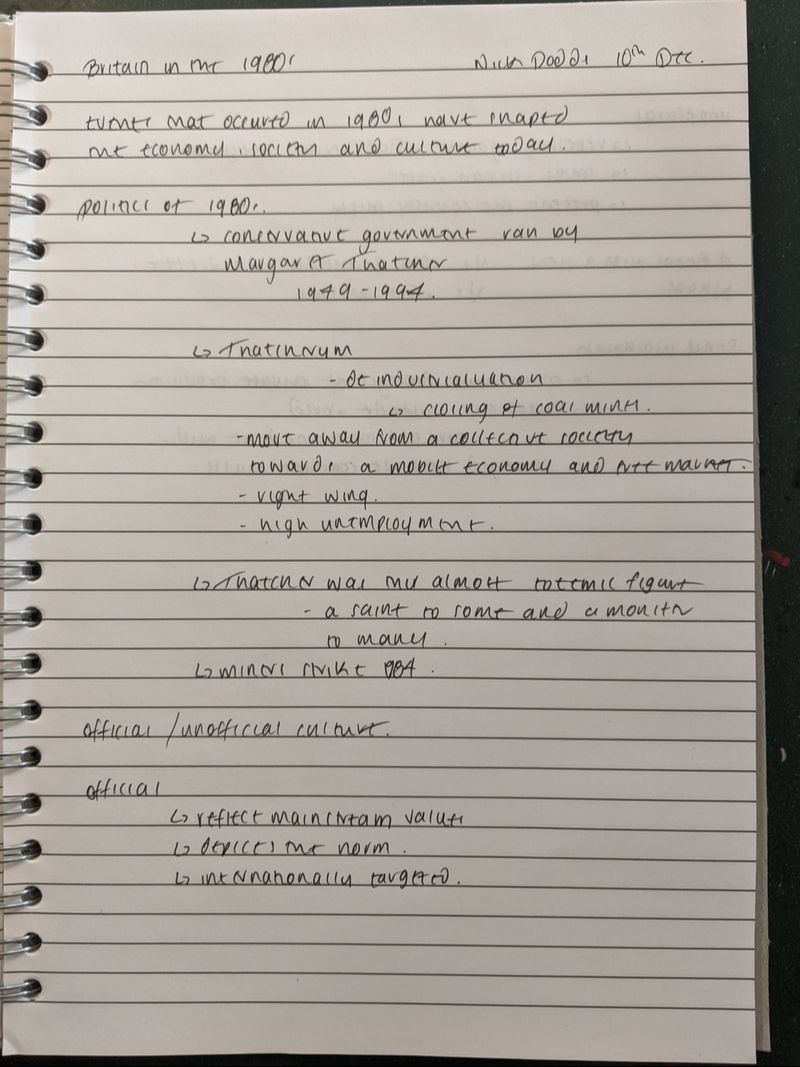 Britain in the 1980s Nick Dodds 10th Dec.
Events that occured in 1980s have shaped
the economy, society and culture today.
Politics of 1980s.
↳ conservative government ran by
Margaret Thatcher
1979-1994.
↳ Thatcherism
- de industrialisation
↳ closing of coal mines.
- move away from a collective society
towards a mobile economy and free market.
- right wing.
- high unemployment.
↳ Thatcher was this almost totemic figure
- a saint to some and a monster
to many.
↳ miners strike 1984.
official /unofficial culture.
official
↳ reflect mainstream values
↳ depicts the norm.
↳ internationally targeted.